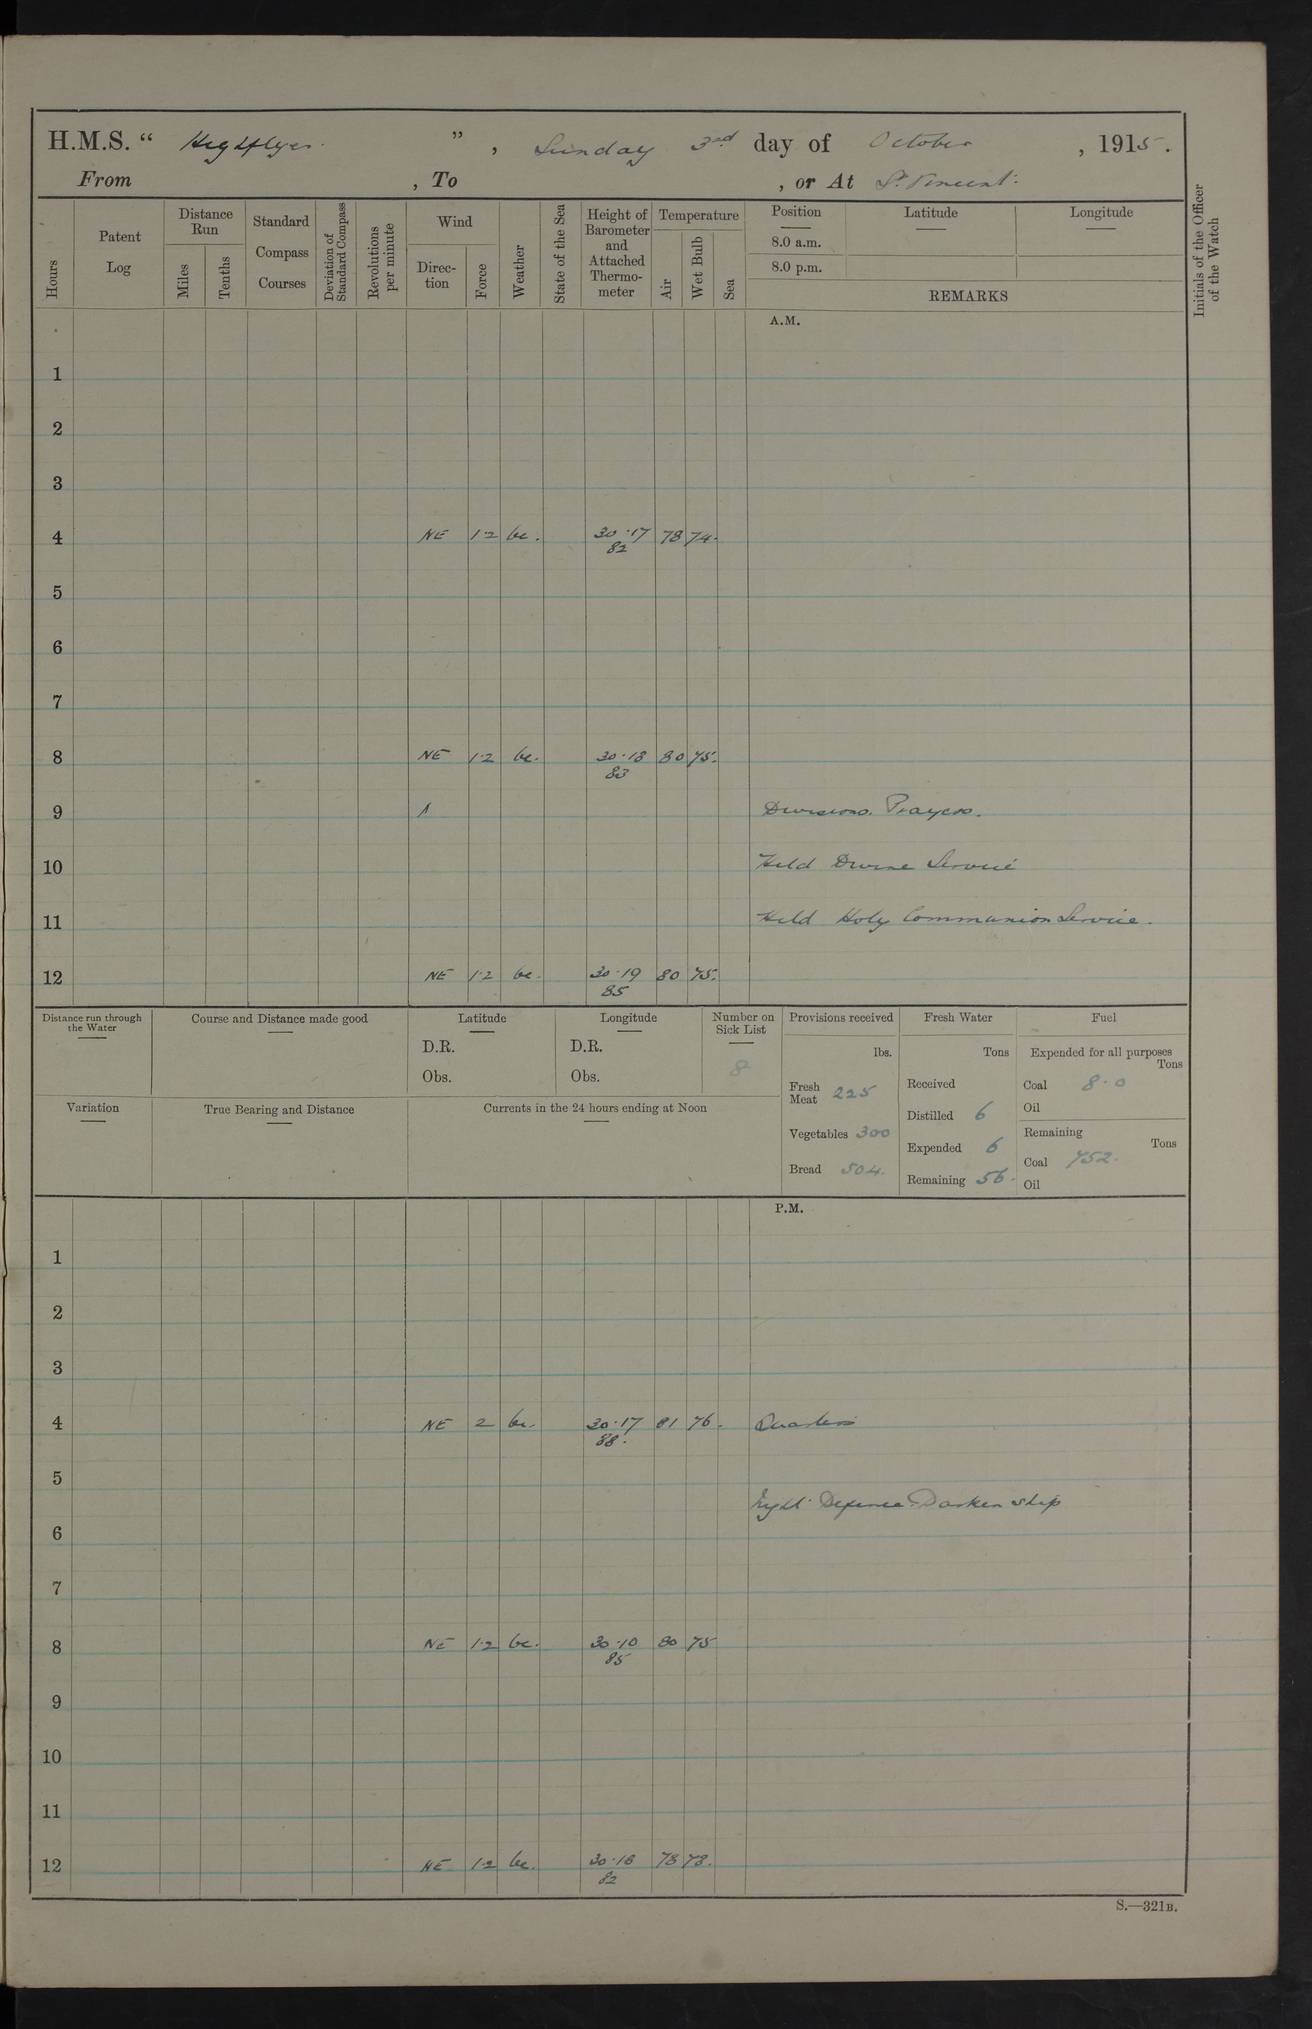 H.M.S. " Highflyer. ", Sunday 3rd day of October, 1915.
From , To , or At St. Vincent.
Hours
Patent Log
Distance Run
Miles
Tenths
Standard Compass Courses
Deviation of Standard Compass
Revolutions per minute
Wind
Direction
Force
Weather
State of the Sea
Height of Barometer and Attached Thermometer
Temperature
Air
Wet Bulb
Sea
Position
8.0 a.m.
8.0 p.m.
Latitude
Longitude
REMARKS
Initials of the Officer of the Watch
A.M.
1
2
3
4 NE 1·2 bc. 30·17 78 74.
82
5
6
7
8 NE 1·2 bc. 30·18 80 75.
83
9 Divisions. Prayers.
10 Held Divine Service
11 Held Holy Communion Service.
12 NE 1·2 bc. 30·19 80 75.
85
Distance run through the Water
Course and Distance made good
Latitude
D.R.
Obs.
Longitude
D.R.
Obs.
Number on Sick List
8
Variation
True Bearing and Distance
Currents in the 24 hours ending at Noon
Provisions received
lbs.
Fresh Meat 225
Vegetables 300
Bread 504.
Fresh Water
Tons
Received
Distilled 6
Expended 6
Remaining 56.
Fuel
Expended for all purposes
Tons
Coal 8·0
Oil
Remaining
Tons
Coal 752.
Oil
P.M.
1
2
3
4 NE 2 bc. 30·17 81 76. Quarters
88.
5
Night Defence. Darken ship
6
7
8 NE 1·2 bc. 30·10 80 75
85
9
10
11
12 NE 1·2 bc. 30·18 78 73.
82
S.—321B.